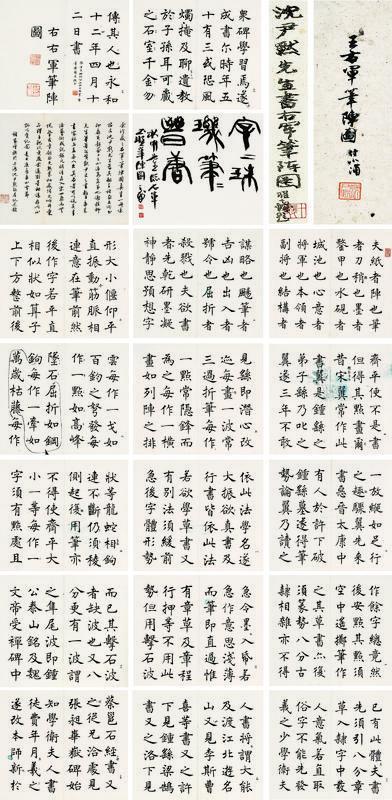 王右軍筆陣圖
沈尹默先生書右軍筆陣圖
夫紙者陣也筆
者刀矟也墨者
鍪甲也水硯者
城池也心意者
將軍也本領者
副將也結構者
謀略也颺筆者
吉凶也出入者
號令也屈折者
殺戮也夫欲書
者先乾研墨凝
神靜思預想字
形大小偃仰平
直振動令筋脈相
連意在筆前然
後作字若平直
相似狀如算子
上下方整前後
齊平便不是書
但得其點畫爾
昔宋翼常作此
書翼是鍾繇之
弟子繇乃叱之
翼遂三年不敢
見繇即潛心改
迹每畫一波常
三過折筆每作
一點常隱鋒而
為之每作一橫
畫如列陣之排
雲每作一戈如
百鈞之弩發每
作一點如高峰
墜石屈折如鋼
鉤每作一牽如
萬歲枯藤每作
一放縱如足行
之趣驟翼先來
書惡晉太康中
有人於許下破
鍾繇墓遂得筆
勢論翼乃讀之
依此法學名遂
大振欲真書及
行書皆依此法
若欲學草書又
有別法須緩前
急後字體形勢
狀等龍蛇相鉤
連不斷仍須稜
側起復用筆亦
不得使齊平大
小一等每作一
字須有點處且
作餘字總竟然
後安點其點須
空中遙擲筆作
之其草書亦復
須篆勢八分古
隸相雜亦不得
急令墨入紙若
急作意思淺薄
而筆即直過惟
有章草及章程
行押等不用此
勢但用擊石波
而已其擊石波
者缺波也又八
分更有一波謂
之隼尾波即鍾
公泰山銘及魏
文帝受禪碑中
已有此體夫書
先須引八分章
草入隸字中發
人意氣若直取
俗字不能先發
羲之少學衛夫
人書將謂大能
及渡江北遊名
山又見李斯曹
喜等書又之許
下見鍾繇梁鵠
書又之洛下見
蔡邕石經書又
之從兄洽處見
張昶華嶽碑始
知學衛夫人書
徒費年月羲之
遂改本師新於
眾碑學習焉遂
成書爾時年五
十有三或恐風
燭掩及聊遺教
於子孫耳可藏
之石室千金勿
傳其人也永和
十二年四月十
二日書
右右軍筆陣
圖
字字珠
璣筆筆